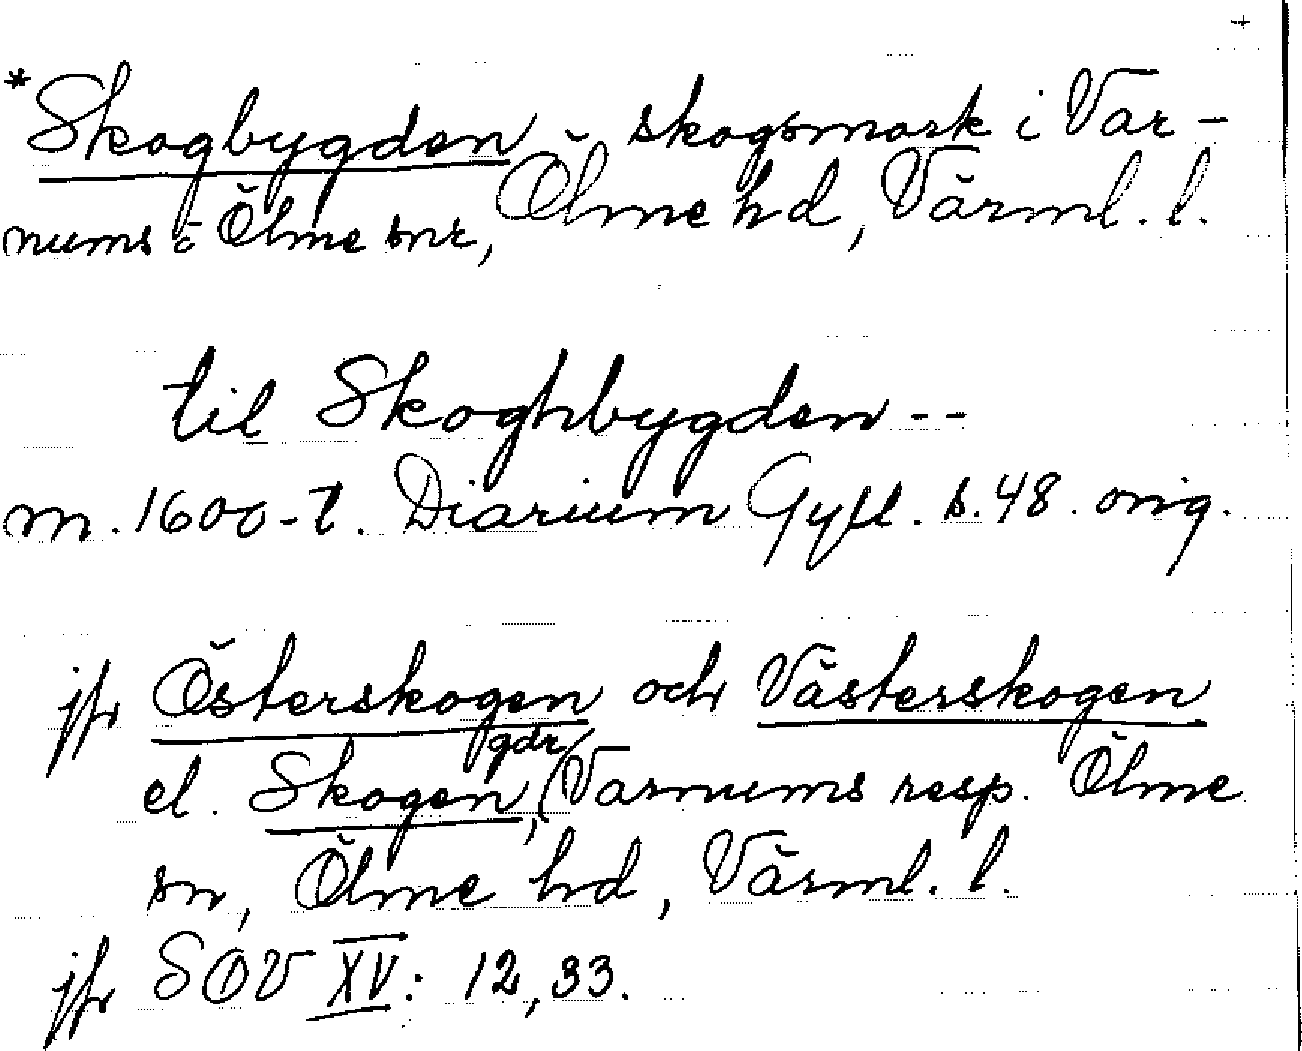 *Skogbygden, skogsmark i Var-
nums o Ölme snr, Ölme hd, Värml. l.
til Skoghbygden --
m. 1600-t. Diarium Gyll. s. 48. orig.
jfr Österskogen och Västerskogen
el. Skogen, gdr, Varnums resp. Ölme
sn, Ölme hd, Värml. l.
jfr SOV XV: 12, 33.